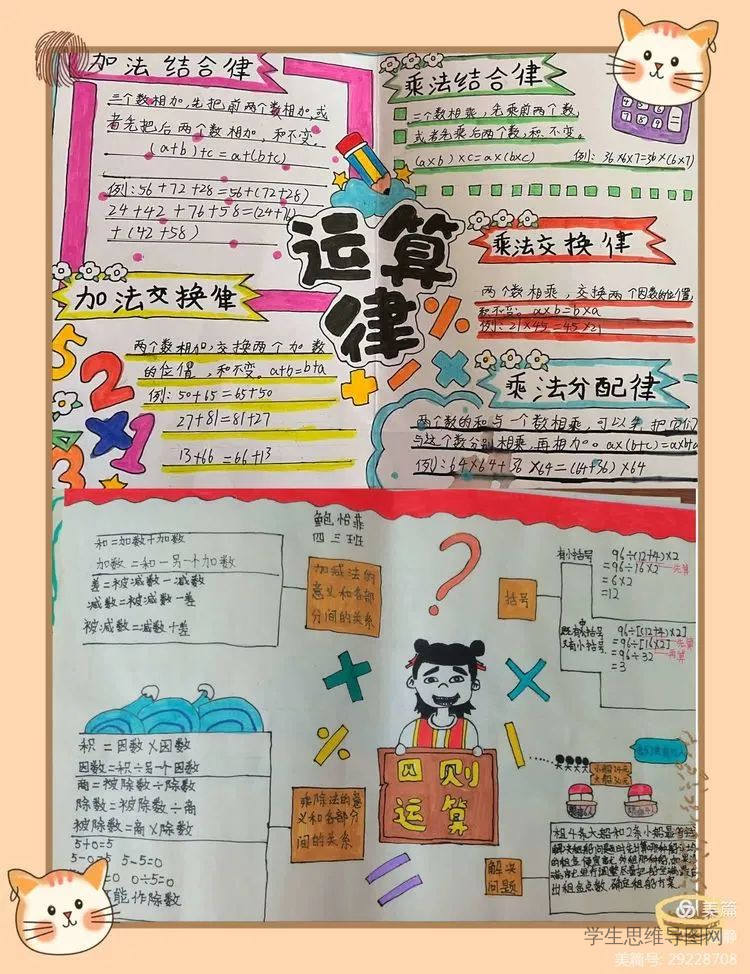 加法结合律
三个数相加,先把前两个数相加,或
者先把后两个数相加,和不变。
(a+b)+c=a+(b+c)
例:56+72+28=56+(72+28)
24+42+76+58=(24+76)
+(42+58)
加法交换律
两个数相加,交换两个加数
的位置,和不变。a+b=b+a
例:50+65=65+50
27+81=81+27
13+66=66+13
运算
律
乘法结合律
三个数相乘,先乘前两个数,
或者先乘后两个数,积不变。
(a×b)×c=a×(b×c) 例:36×6×7=36×(6×7)
乘法交换律
两个数相乘,交换两个因数的位置,
积不变。a×b=b×a
例:21×45=45×21
乘法分配律
两个数的和与一个数相乘,可以先把它们
与这个数分别相乘,再相加。a×(b+c)=a×b+a
例:64×64+36×64=(64+36)×64
5
2
1
3
鲍怡菲
四三班
和=加数+加数
加数=和-另一个加数
差=被减数-减数
减数=被减数-差
被减数=减数+差
加减法的
意义和各部
分间的关系
积=因数×因数
因数=积÷另一个因数
商=被除数÷除数
除数=被除数÷商
被除数=商×除数
5+0=5
5-0=5 5-5=0
0÷5=0
能作除数
乘除法的意
义和各部分
间的关系
?
四则
运算
括号
有小括号 96÷(12+4)×2
=96÷16×2 先算
=6×2
=12
既有中括号 96÷[(12+4)×2]
又有小括号 =96÷[16×2] 先算
=96÷32 再算
=3
解决
问题
小船24元
大船30元
租4条大船和2条小船最省钱
美篇
学生思维导图网
美篇号:29228708